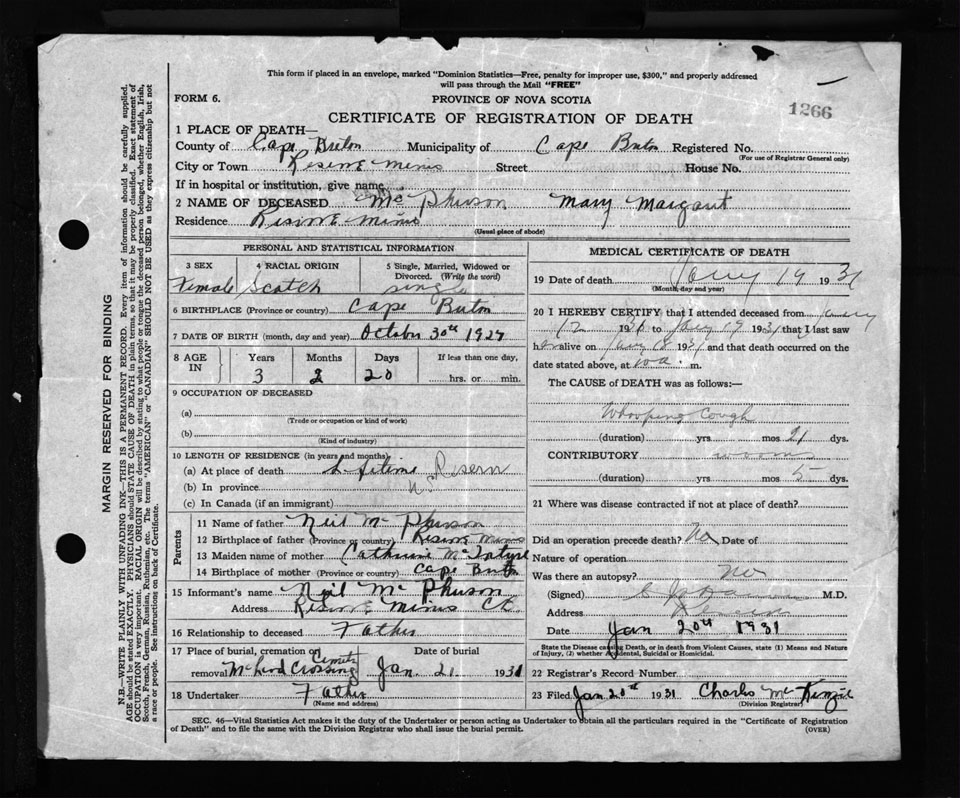 This form if placed in an envelope, marked "Dominion Statistics—Free, penalty for improper use, $300," and properly addressed
will pass through the Mail "FREE"
FORM 6.
PROVINCE OF NOVA SCOTIA
1266
CERTIFICATE OF REGISTRATION OF DEATH
1 PLACE OF DEATH—
County of Cape Breton Municipality of Cape Breton Registered No.
(For use of Registrar General only)
City or Town Reserve Mines Street House No.
If in hospital or institution, give name
2 NAME OF DECEASED McPherson Mary Margaret
Residence Reserve Mines
(Usual place of abode)
PERSONAL AND STATISTICAL INFORMATION
3 SEX 4 RACIAL ORIGIN 5 Single, Married, Widowed or
Divorced. (Write the word)
Female Scotch Single
6 BIRTHPLACE (Province or country) Cape Breton
7 DATE OF BIRTH (month, day and year) October 30th 1927
8 AGE IN Years Months Days If less than one day,
3 2 20 hrs. or min.
9 OCCUPATION OF DECEASED
(a)
(Trade or occupation or kind of work)
(b)
(Kind of industry)
10 LENGTH OF RESIDENCE (in years and months)
(a) At place of death Lifetime Reserve
(b) In province
(c) In Canada (if an immigrant)
Parents
11 Name of father Neil McPherson
12 Birthplace of father (Province or country) Reserve Mines
13 Maiden name of mother Catherine McIntyre
14 Birthplace of mother (Province or country) Cape Breton
15 Informant's name Neil McPherson
Address Reserve Mines C.B.
16 Relationship to deceased Father
17 Place of burial, cremation or removal Date of burial
McLeod Crossing Cemetry Jan. 21 1931
18 Undertaker Father
(Name and address)
MEDICAL CERTIFICATE OF DEATH
19 Date of death Jany 19 1931
(Month, day and year)
20 I HEREBY CERTIFY that I attended deceased from
12 193 to Jany 19 1931 that I last saw
h alive on Jany 18 1931 and that death occurred on the
date stated above, at m.
The CAUSE of DEATH was as follows:
Whooping Cough
(duration) yrs mos 21 dys.
CONTRIBUTORY
(duration) yrs mos 5 dys.
21 Where was disease contracted if not at place of death?
Did an operation precede death? No Date of
Nature of operation
Was there an autopsy? No
(Signed) M.D.
Address Reserve
Date Jan 20th 1931
State the Disease causing Death, or in death from Violent Causes, state (1) Means and Nature
of Injury, (2) whether Accidental, Suicidal or Homicidal.
22 Registrar's Record Number
23 Filed Jan 20th 1931 Charles McKenzie
(Division Registrar)
SEC. 46—Vital Statistics Act makes it the duty of the Undertaker or person acting as Undertaker to obtain all the particulars required in the "Certificate of Registration
of Death" and to file the same with the Division Registrar who shall issue the burial permit.
(OVER)
MARGIN RESERVED FOR BINDING
N.B.—WRITE PLAINLY WITH UNFADING INK—THIS IS A PERMANENT RECORD. Every item of information should be carefully supplied.
AGE should be stated EXACTLY. PHYSICIANS should STATE CAUSE OF DEATH in plain terms, so that it may be properly classified. Exact statement of
OCCUPATION is very important. RACIAL ORIGIN will be described by stating to what people or tongue the deceased person belonged, whether English, Irish,
Scotch, French, German, Russian, Ruthenian, etc. The terms "AMERICAN" or "CANADIAN" SHOULD NOT BE USED as they express citizenship but not
a race or people. See instructions on back of Certificate.